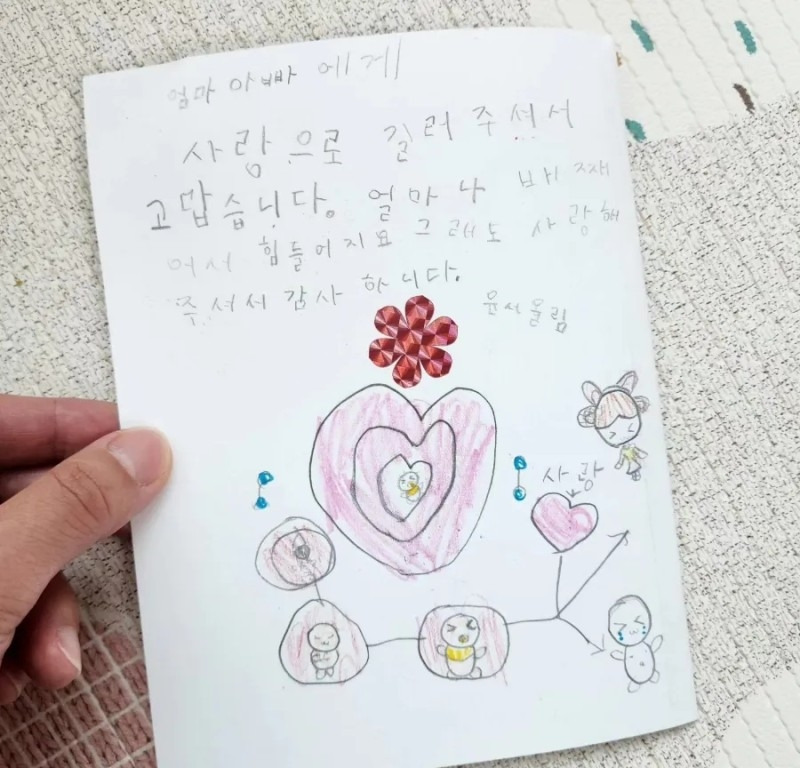 엄마 아빠 에게
사랑으로 길러 주셔서
고맙습니다. 얼마나 배 째
어서 힘들어지요 그래도 사랑해
주셔서 감사 하니다.
윤서올림
사랑